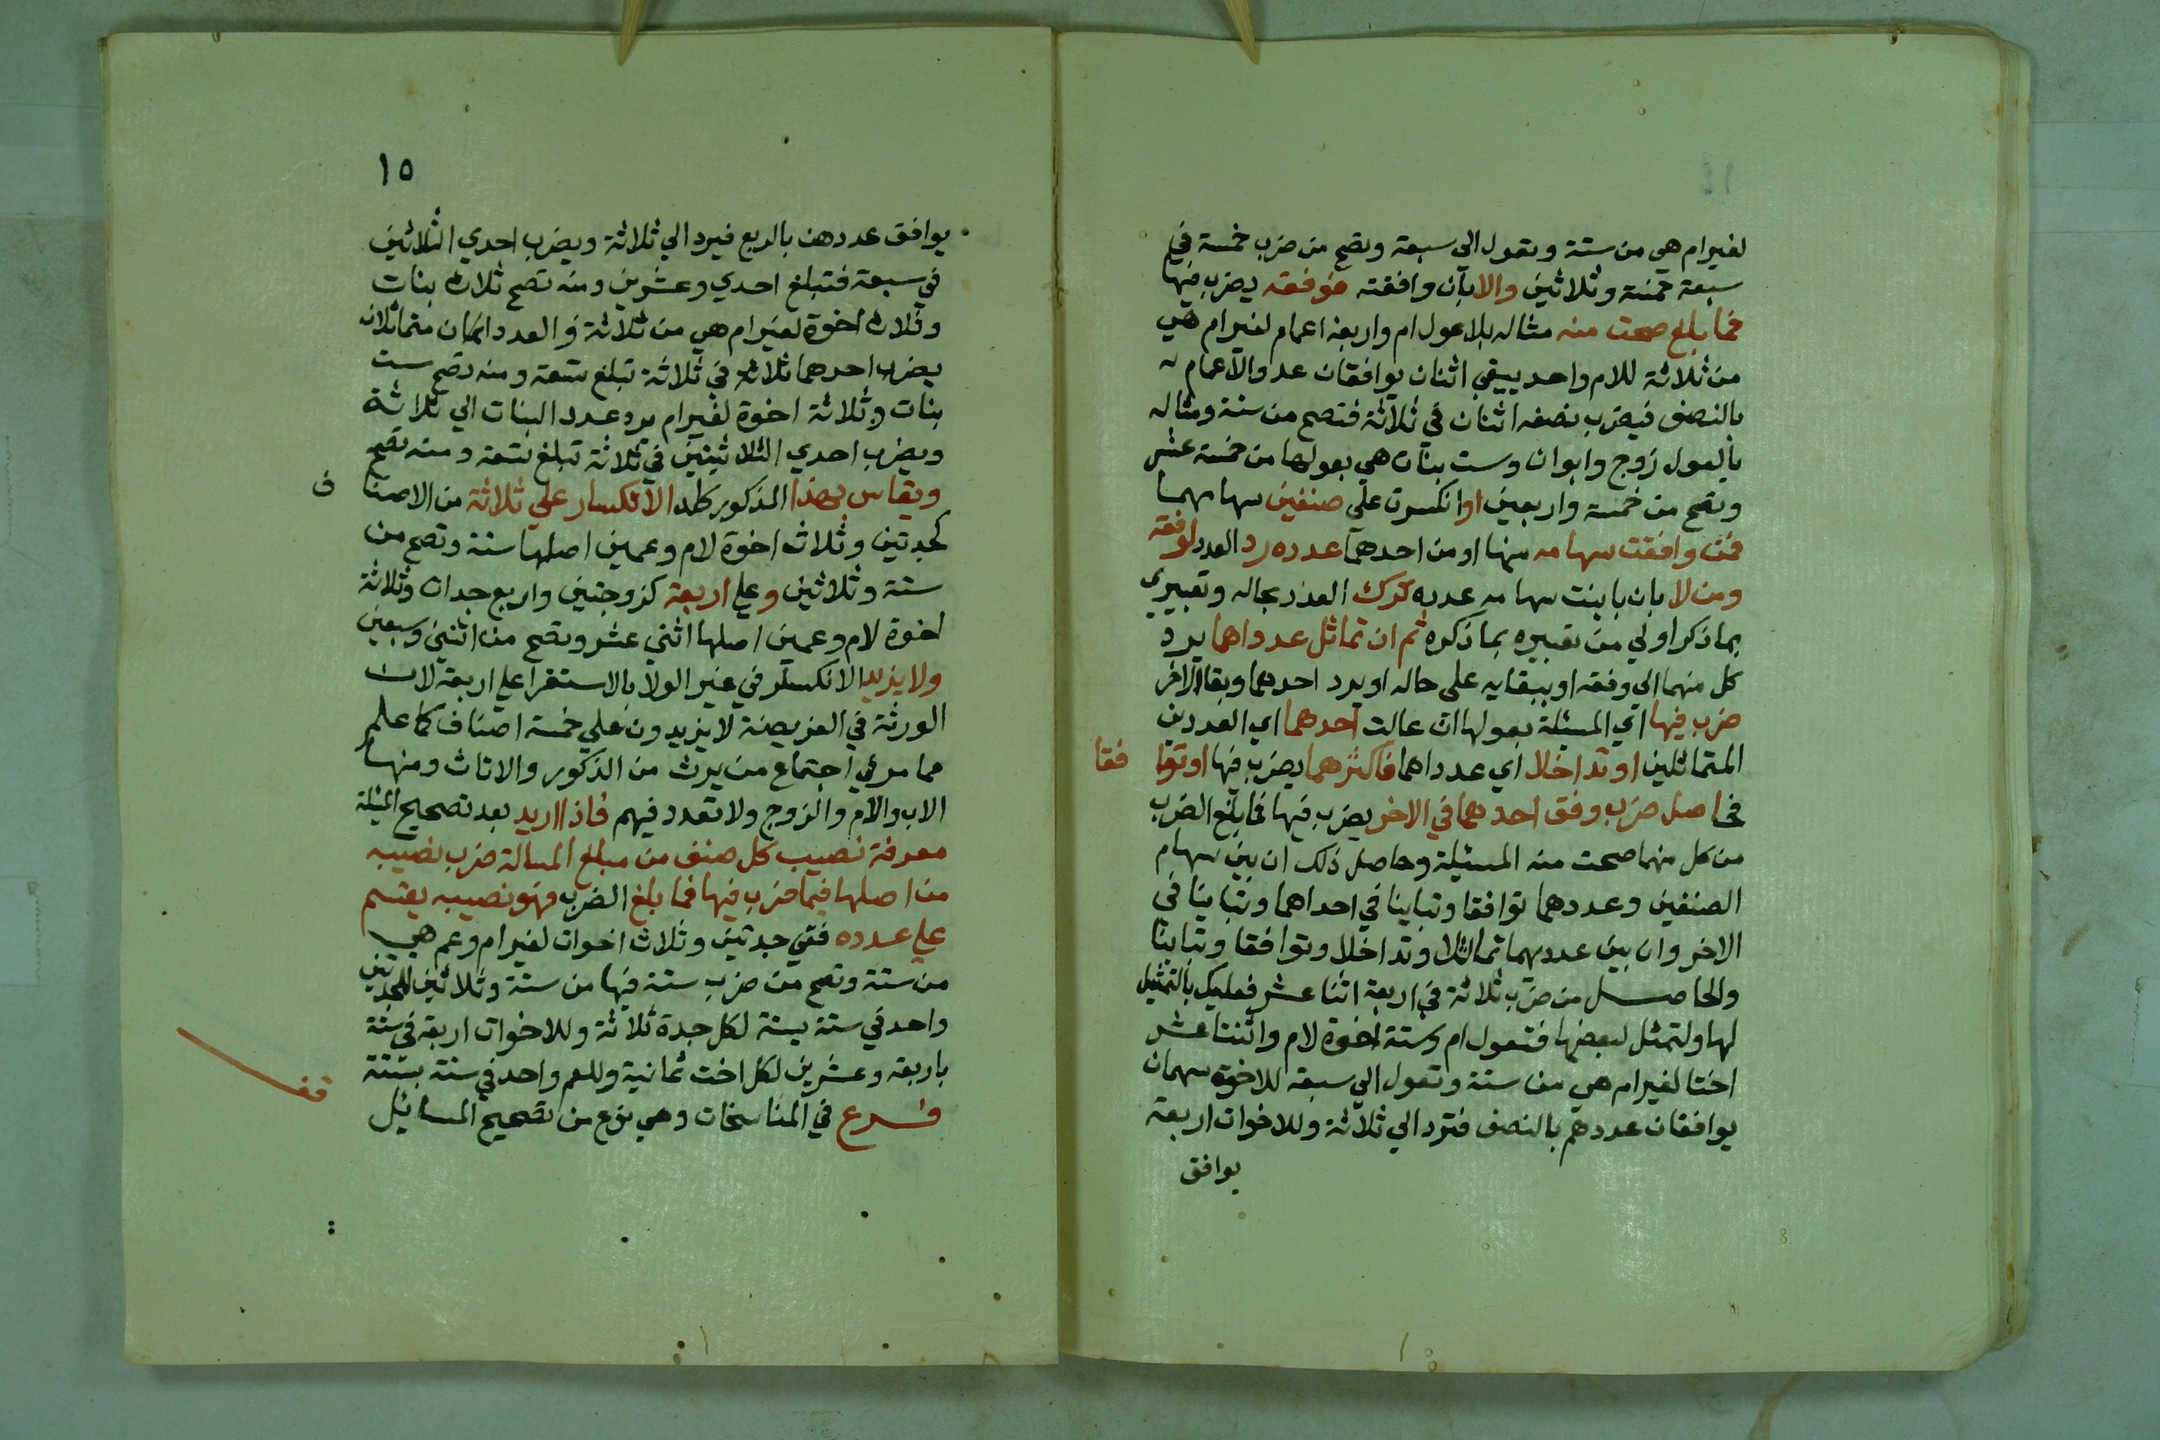 لغير ام هي من ستة وتعول الي سبعة وتصح من ضرب خمسة في
سبعة خمسة وثلاثين والا بان وافقته فوفقه يضرب فيها
فما بلغ صحت منه مثاله بلا عول ام واربعة اعمام لغير ام هي
من ثلاثة للام واحد يبقي اثنان يوافقان عدد الاعمام
بالنصف فيضرب نصفه اثنان في ثلاثة فتصح من ستة ومثاله
بالعول زوج وابوان وست بنات هي بعولها من خمسة عشر
وتصح من خمسة واربعين او انكسرت علي صنفين سهامهما
فمن وافقت سهامه منها او من احدهما عدده رد العدد لوفقه
ومن لا بان باينت سهامه عدده ترك العدد بحاله وتعبيري
بما ذكر اولي من تعبيره بما ذكره ثم ان تماثل عدداهما برد
كل منهما الي وفقه او ببقايه علي حاله او برد احدهما وبقا الاخر
ضرب فيها اي المسئلة بعولها ان عالت احدهما اي العددين
المتماثلين او تداخلا اي عدداهما فاكثرهما يضرب فيها او توا
فقا
فحاصل ضرب وفق احدهما في الاخر يضرب فيها فما بلغ الضرب
من كل منهما صحت منه المسئلة وحاصل ذلك ان بين سهام
الصنفين وعددهما توافقا وتباينا في احداهما وتباينا في
الاخر وان بين عددهما تماثلا وتداخلا وتوافقا وتباينا
والحاصل من ضرب ثلاثة في اربعة اثنا عشر فعليك بالتمثيل
لها ولتمثل لبعضها فتعول ام وستة اخوة لام واثنتا عشر
اختا لغير ام هي من ستة وتعول الي سبعة للاخوة سهمان
يوافقان عددهم بالنصف فترد الي ثلاثة وللاخوات اربعة
يوافق
١٥
يوافق عددهن بالربع فيرد الي ثلاثة ويضرب احدي الثلاثين
في سبعة فتبلغ احدي وعشرين ومنه تصح ثلاث بنات
وثلاث اخوة لغير ام هي من ثلاثة والعددان متماثلان
يضرب احدهما ثلاثة في ثلاثة تبلغ تسعة ومنه تصح ست
بنات وثلاثة اخوة لغير ام يرد عدد البنات الي ثلاثة
ويضرب احدي الثلاثتين في ثلاثة تبلغ تسعة ومنه تصح
ويقاس بهذا المذكور كله الانكسار علي ثلاثة من الاصنا
ف
كجدتين وثلاث اخوة لام وعمين اصلها ستة وتصح من
ستة وثلاثين وعلي اربعة كزوجتين واربع جدات وثلاثة
اخوة لام وعمين اصلها اثني عشر وتصح من اثنين وسبعين
ولا يزيد الانكسار في غير الولا بالاستقرا علي اربعة لان
الورثة في الفريضة لا يزيدون علي خمسة اصناف كما علم
مما مر في اجتماع من يرث من الذكور والاناث ومنها
الاب والام والزوج ولا تعدد فيهم فاذا اريد بعد تصحيح المسئلة
معرفة نصيب كل صنف من مبلغ المسالة ضرب نصيبه
من اصلها فيما ضرب فيها فما بلغ الضرب فهو نصيبه يقسم
علي عدده ففي جدتين وثلاث اخوات لغير ام وعم هي
من ستة وتصح من ضرب ستة فيها من ستة وثلاثين للجدتين
واحد في ستة بستة لكل جدة ثلاثة وللاخوات اربعة في ستة
باربعة وعشرين لكل اخت ثمانية وللعم واحد في ستة بستة
فرع في المناسخات وهي نوع من تصحيح المسائيل
قف